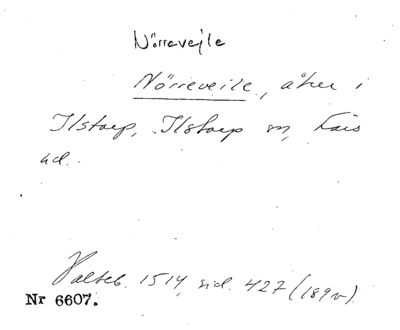 Nörrevejle
Nörreveile, åker i
Ilstorp, Ilstorp sn, Färs
hd.
Palteb. 1514, sid. 427 (189v).
Nr 6607.